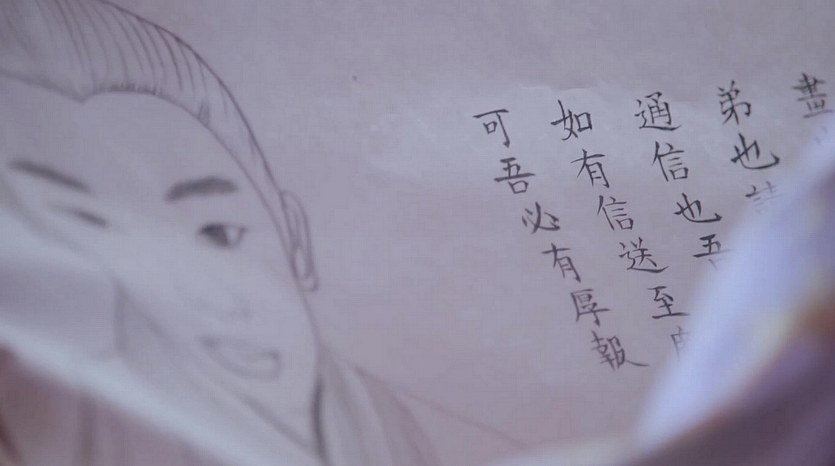 畫
弟也
通信也吾
如有信送至
可吾必有厚報